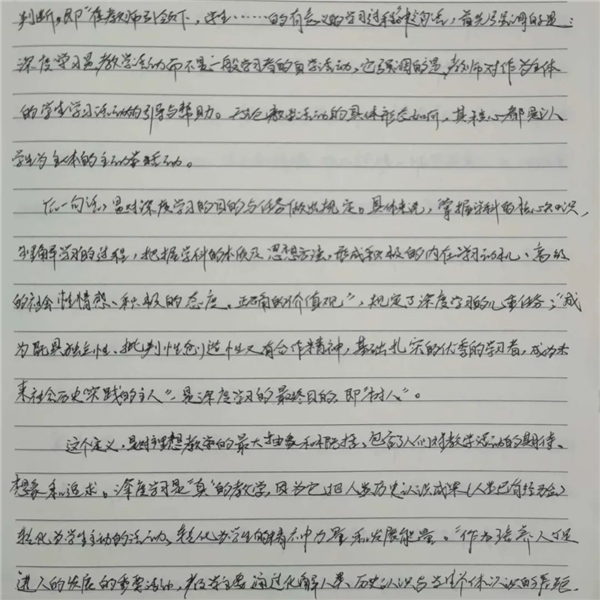 判断,即“在教师引领下,学生……的有意义的学习过程”这句话,首先强调的是:
深度学习是教学活动而不是一般学习者的自学活动,它强调的是教师对作为主体
的学生学习活动的引导与帮助。无论教学活动的具体形态如何,其核心都是以
学生为主体的主动活动。
后一句话,是对深度学习的目的与任务做出规定。具体来说,“掌握学科的核心知识,
理解学习的过程,把握学科的本质及思想方法,形成积极的内在学习动机、高级
的社会性情感、积极的态度、正确的价值观”,规定了深度学习的任务;“成
为既具独立性、批判性、创造性又有合作精神,基础扎实的优秀的学习者,成为未
来社会历史实践的主人”是深度学习的最终目的,即“树人”。
这个定义,是对理想教学的最大抽象和概括,包含了人们对教学活动的期待、
想象和追求。深度学习是“真”的教学,因为它把人类历史认识成果(人类已有经验)
转化为学生主动的活动、转化为学生的精神力量和发展能量。“作为培养人、促
进人的发展的重要活动,教学主要通过化解人类历史认识与学生个体认识的矛盾,